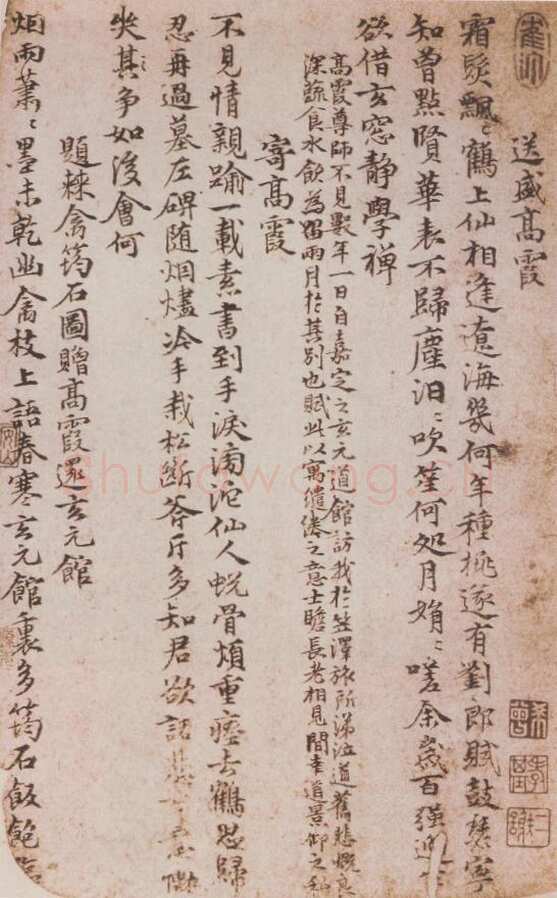 送盛高霞
霜髮飄〻鶴上仙相逢遼海幾何年種桃遂有劉郎賦鼓瑟寧
知曾點賢華表不歸塵汩〻吹笙何処月娟〻嗟余歲百強
欲借玄窓靜學禪
高霞尊師不見數年一日自嘉定之玄元道館訪我於笠澤旅所涕泣道舊悲慨良
深蔬食水飲為留兩月於其別也賦此以寓繾綣之意士瞻長老相見間幸道景仰之私
寄高霞
不見情親踰一載素書到手淚滂沱仙人蛻骨煩重瘞去鶴思歸
忍再過墓左碑随烟燼冷手栽松斷斧斤多知君欲話
失其争如後會何
題棘禽筠石圖贈高霞還玄元館
烟雨蕭〻墨未乾幽禽枝上語春寒玄元館裏多筠石飯飽
shufawang.cn